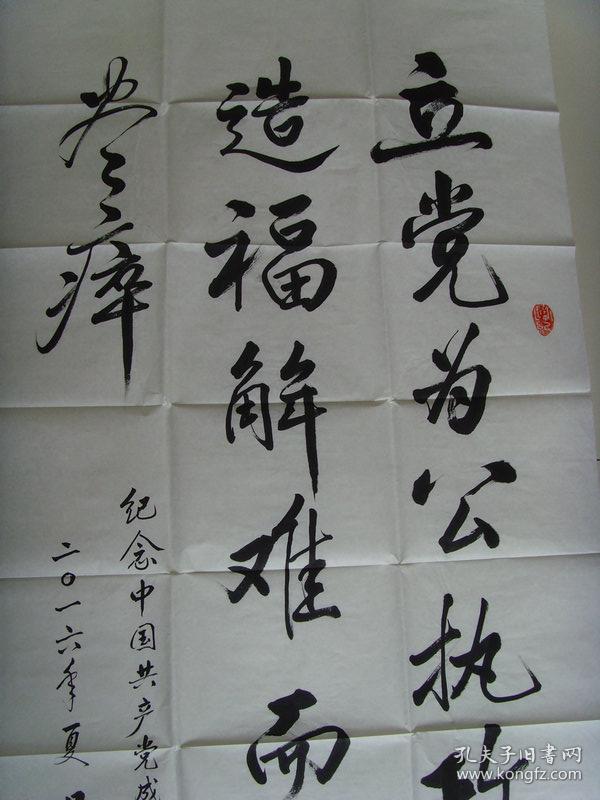 立党为公执
造福解难而
尽瘁
纪念中国共产党成
二〇一六年夏
孔夫子旧书网
www.kongfz.com